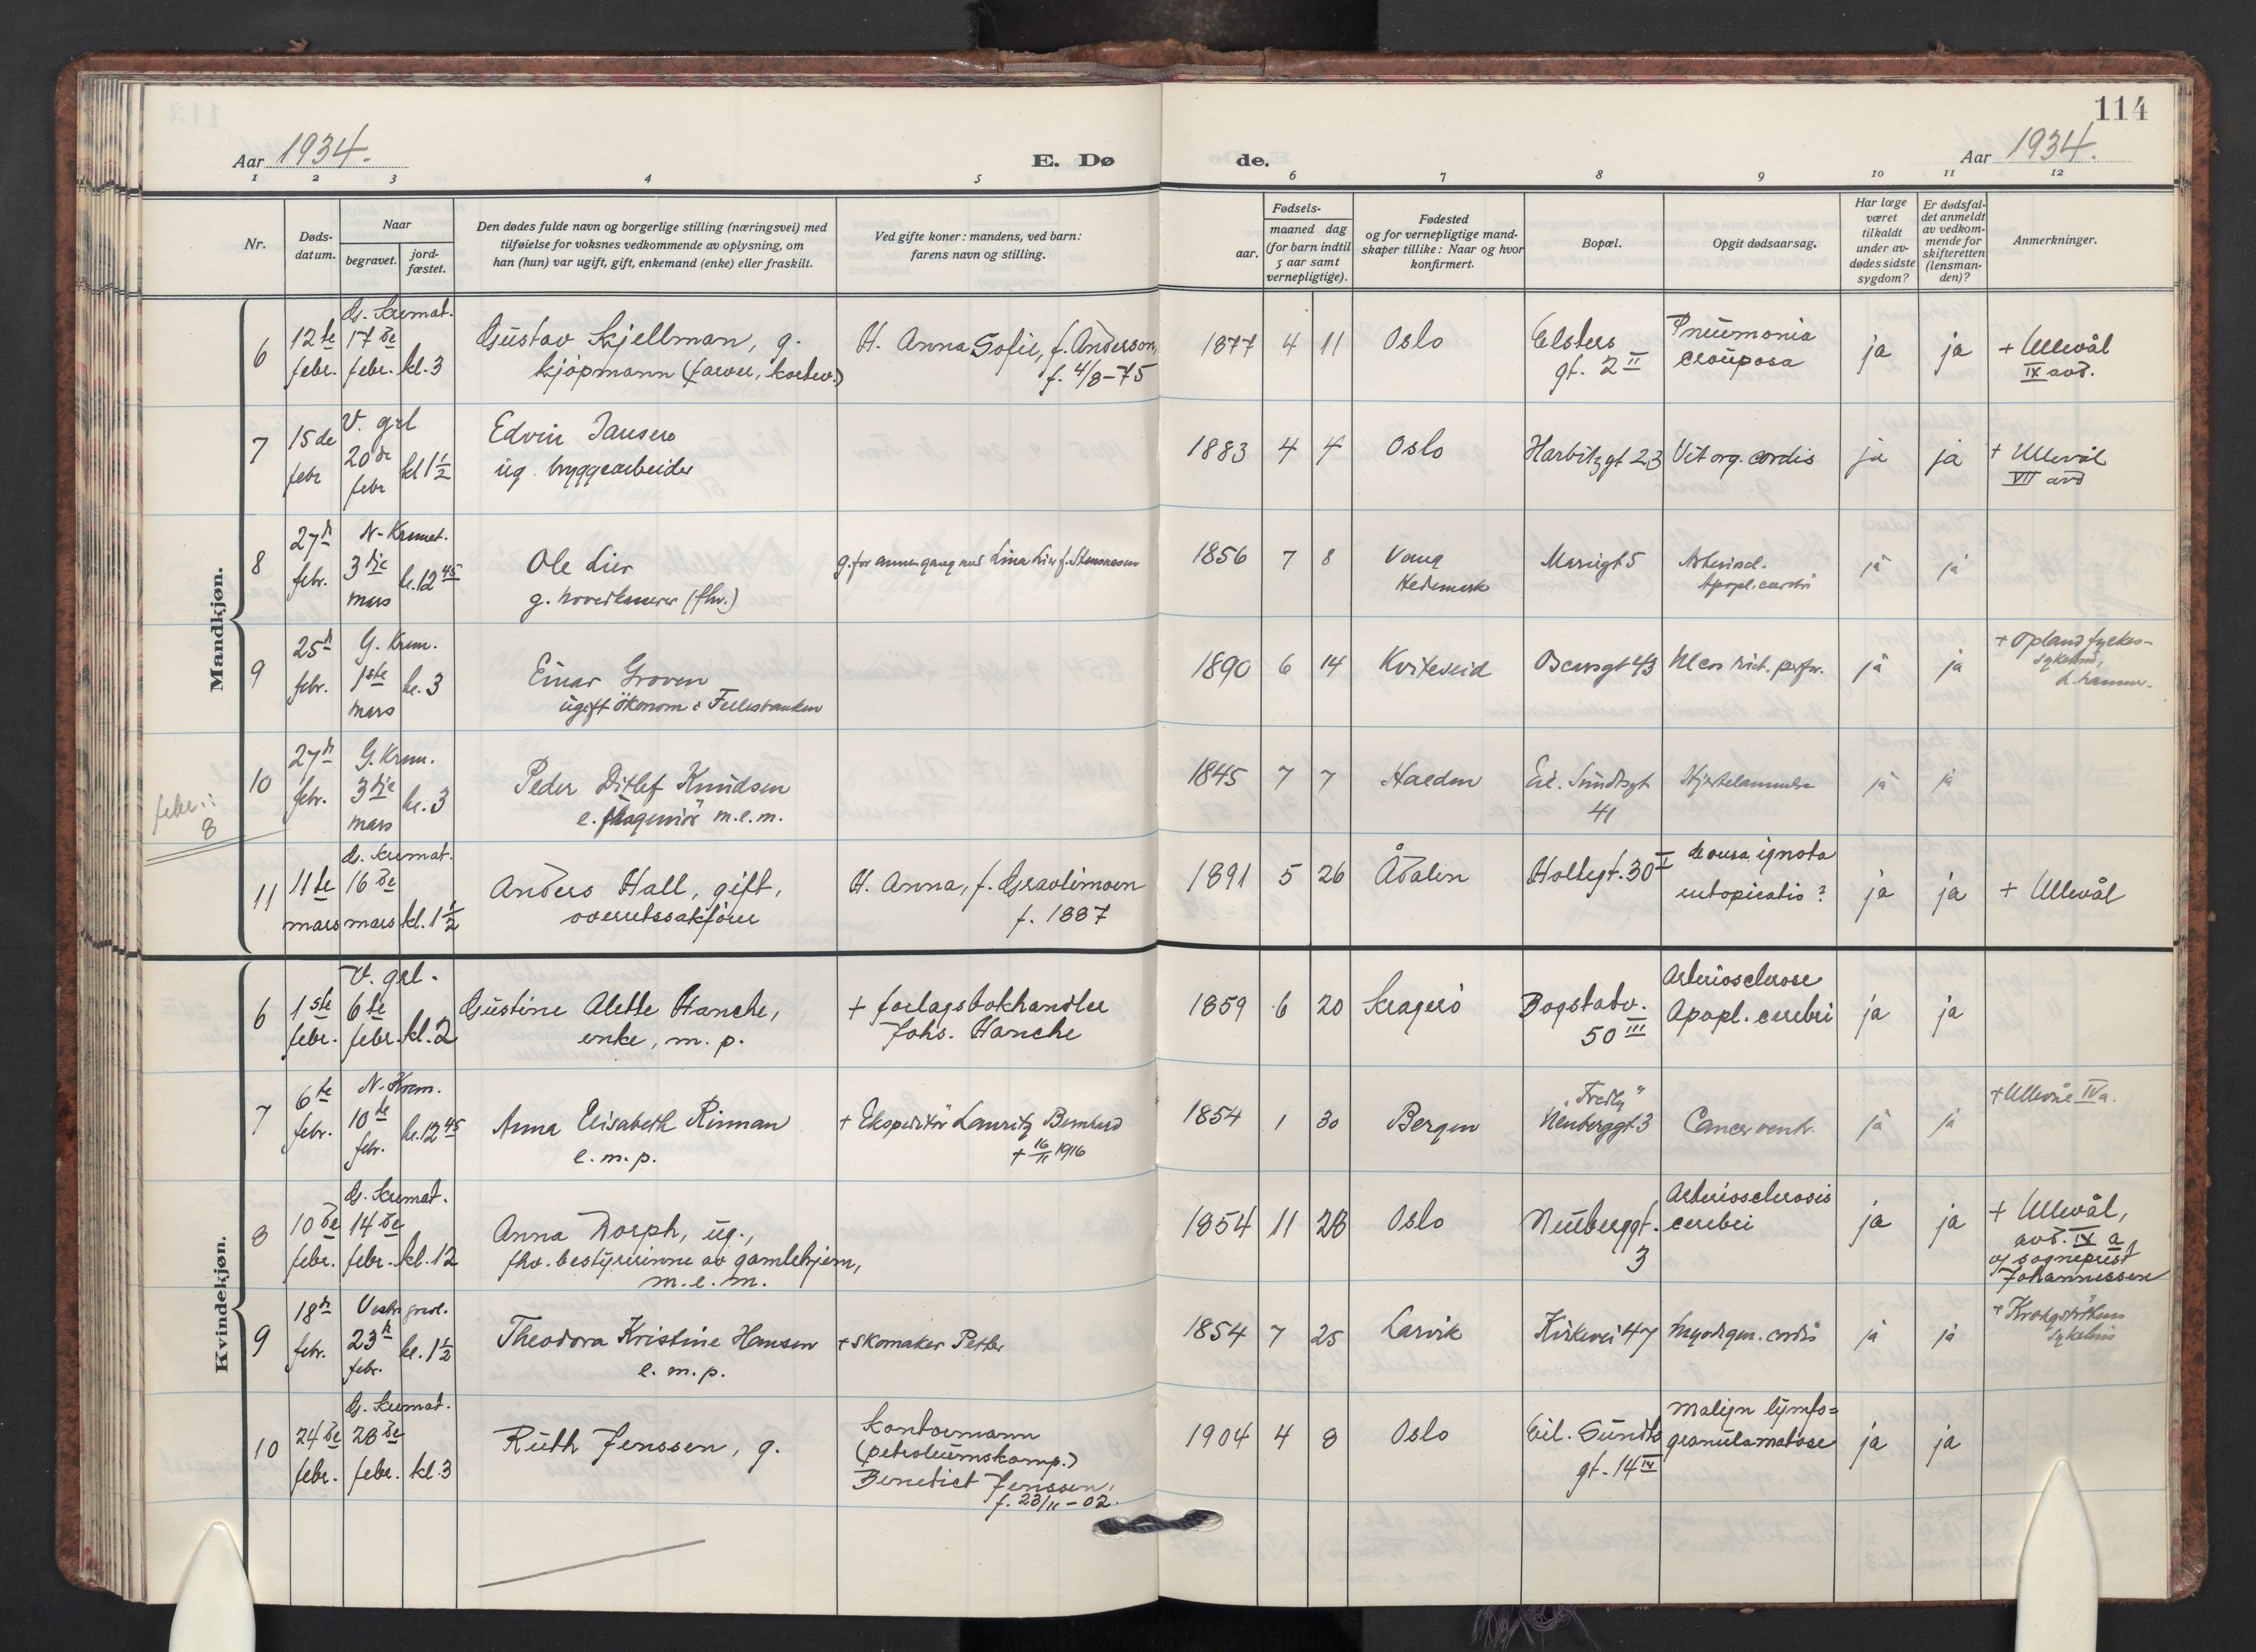 114
Aar 1934.
E. Dø
de.
Aar 1934.
1 2 3 4 5 6 7 8 9 10 11 12
Nr.
Døds-
datum.
Naar
begravet.
jord-
fæstet.
Den dødes fulde navn og borgerlige stilling (næringsvei) med
tilføielse for voksnes vedkommende av oplysning, om
han (hun) var ugift, gift, enkemand (enke) eller fraskilt.
Ved gifte koner: mandens, ved barn:
farens navn og stilling.
Fødsels-
aar.
maaned dag
(for barn indtil
5 aar samt
vernepligtige).
Fødested
og for vernepligtige mand-
skaper tillike: Naar og hvor
konfirmert.
Bopæl.
Opgit dødsaarsag.
Har læge
været
tilkaldt
under av-
dødes sidste
sygdom?
Er dødsfal-
det anmeldt
av vedkom-
mende for
skifteretten
(lensman-
den)?
Anmerkninger.
Mandkjøn.
6
12te
febr.
G. Kremat.
17de
febr.
kl. 3
Gustav Kjellman, g.
kjøpmann
H. Anna Sofie, f. Anderson,
f. 4/8-75
1877 4 11
Oslo
Elsters
gt. 2 II
Pneumonia
crouposa
ja
ja
+ Ullevål
IX avd.
7
15de
febr
V. grl
20de
febr
kl 1 1/2
Edvin Jansen
ug. bryggearbeider
1883 4 4
Oslo
Harbitzgt 23
Vit org. cordis
ja
ja
+ Ullevål
VII avd
8
27d
febr.
N-Kremat.
3dje
mars
kl. 12 45
Ole Lier
g. hovedkasserer (fhv.)
g. for annen gang med Lina Lier f.
1856 7 8
Vang
Hedemark
5
Apopl. cerebri
ja
ja
9
25d
febr.
G. Krem.
1ste
mars
kl. 3
Einar Groven
ugift økonom i Fellesbanken
1890 6 14
Kviteseid
Oscarsgt 43
Ulcus
ja
ja
+ Opland fylkes-
sykehus,
L. hammer.
febr.:
8
10
27d
febr.
G. Krem.
3dje
mars
kl. 3
Peder Ditlef Knudsen
e. m.e.m.
1845 7 7
Halden
Eil. Sundtsgt
41
Hjertelammelse
ja
ja
11
11te
mars
G. Kremat.
16de
mars
kl. 1 1/2
Anders Hall, gift,
overretssakfører
H. Anna, f. Gravlimoen
f. 1887
1891 5 26
Ådalen
Holtegt. 30 I
causa ignota
ja
ja
+ Ullevål
Kvindekjøn.
6
1ste
febr.
V. grl.
6te
febr.
kl. 2
Gustine Alette Hanche,
enke, m. p.
+ forlagsbokhandler
Johs. Hanche
1859 6 20
Kragerö
Bogstadv.
50 III
Arteriosclerose
Apopl. cerebri
ja
ja
7
6te
febr.
N-Krem.
10de
febr.
kl. 12 45
Anna Elisabeth Rinman
e. m. p.
+ Ekspeditør Lauritz Bernhard
+ 16/11 1916
1854 1 30
Bergen
„Fredly"
Neuberggt 3
Cancer ventr.
ja
ja
+ Ullevål IV a.
8
10de
febr.
G. Kremat.
14de
febr.
kl. 12
Anna Dorph, ug.,
fhv. bestyrerinne av gamlehjem,
m. e. m.
1854 11 28
Oslo
Neuberggt.
3
Arteriosclerosis
cerebri
ja
ja
+ Ullevål,
avd. IX a
v/ sogneprest
Johannessen
9
18de
febr.
Vestre gravl.
23d
febr.
kl. 1 1/2
Theodora Kristine Hansen
e. m. p.
+ skomaker Petter
1854 7 25
Larvik
Kirkevei 47
Myodegen. cordis
ja
ja
+ Krohgstöttens
sykehus
10
24de
febr.
G. Kremat.
28de
febr.
kl. 3
Ruth Jenssen, g.
kontormann
(petroleumskomp.)
Benedict Jenssen,
f. 23/11-02.
1904 4 8
Oslo
Eil. Sundts
gt. 14 IV
Malign lymfo-
granulamatose
ja
ja